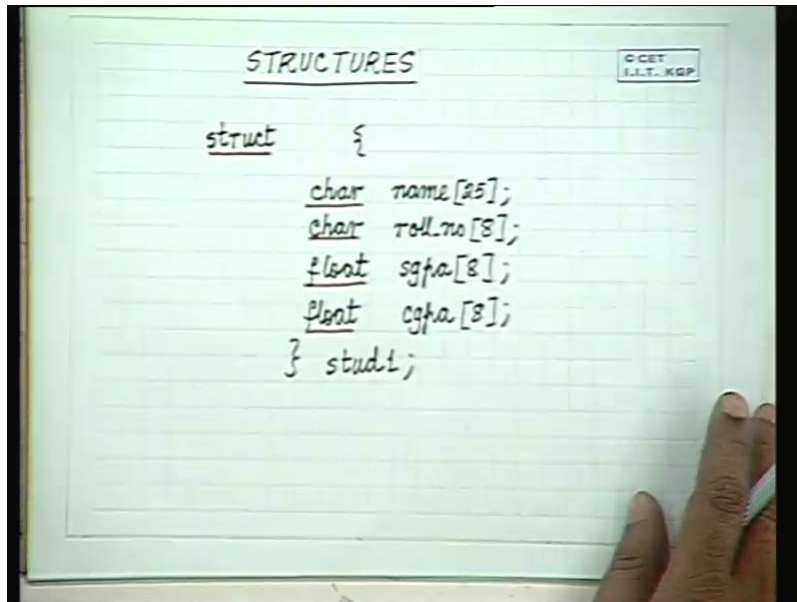 STRUCTURES
© CET
I.I.T. KGP
struct {
char name[25];
char roll_no[8];
float sgpa[8];
float cgpa[8];
} stud1;